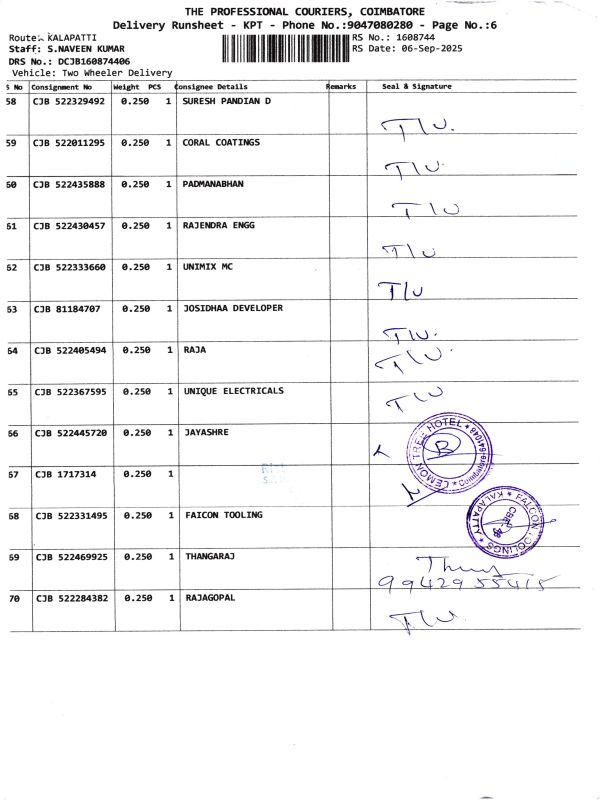 THE PROFESSIONAL COURIERS, COIMBATORE
Delivery Runsheet - KPT - Phone No.:9047080280 - Page No.:6
Route: KALAPATTI
RS No.: 1608744
Staff: S.NAVEEN KUMAR
RS Date: 06-Sep-2025
DRS No.: DCJB160874406
Vehicle: Two Wheeler Delivery
S No Consignment No Weight PCS Consignee Details Remarks Seal & Signature
58 CJB 522329492 0.250 1 SURESH PANDIAN D
T/U.
59 CJB 522011295 0.250 1 CORAL COATINGS
T/U.
60 CJB 522435888 0.250 1 PADMANABHAN
T/U
61 CJB 522430457 0.250 1 RAJENDRA ENGG
T/U
62 CJB 522333660 0.250 1 UNIMIX MC
T/U
63 CJB 81184707 0.250 1 JOSIDHAA DEVELOPER
T/U.
64 CJB 522405494 0.250 1 RAJA
T/U.
65 CJB 522367595 0.250 1 UNIQUE ELECTRICALS
T/U
66 CJB 522445720 0.250 1 JAYASHRE
LEMON TREE HOTEL * Coimbatore-641048 *
B
67 CJB 1717314 0.250 1
68 CJB 522331495 0.250 1 FAICON TOOLING
FALCON TOOLINGS * KALAPATTY *
69 CJB 522469925 0.250 1 THANGARAJ
99429 55415
70 CJB 522284382 0.250 1 RAJAGOPAL
T/U.